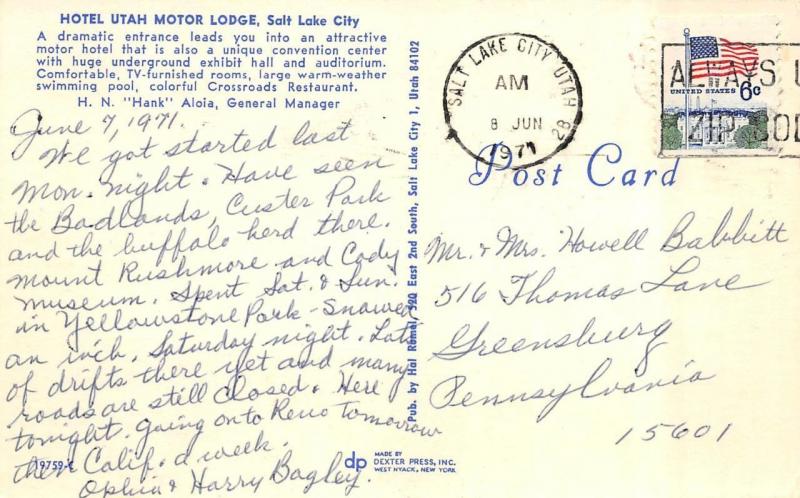 HOTEL UTAH MOTOR LODGE, Salt Lake City
A dramatic entrance leads you into an attractive
motor hotel that is also a unique convention center
with huge underground exhibit hall and auditorium.
Comfortable, TV-furnished rooms, large warm-weather
swimming pool, colorful Crossroads Restaurant.
H. N. "Hank" Aloia, General Manager
June 7, 1971.
We got started last
Mon. night. Have seen
the Badlands, Custer Park
and the buffalo herd there.
Mount Rushmore and Cody
Museum. Spent Sat. & Sun.
in Yellowstone Park - Snowed
an inch. Saturday night. Lots
of drifts there yet and many
roads are still closed. Here
tonight. Going on to Reno tomorrow
then Calif. a week.
Ophia & Harry Bagley.
19759-C
Pub. by Hal Rumel, 320 East 2nd South, Salt Lake City 1, Utah 84102
dp
MADE BY
DEXTER PRESS, INC.
WEST NYACK, NEW YORK
SALT LAKE CITY, UTAH
AM
8 JUN
1971
28
UNITED STATES 6c
ALWAYS U
ZIP COD
Post Card
Mr. & Mrs. Howell Babbitt
516 Thomas Lane
Greensburg
Pennsylvania
15601